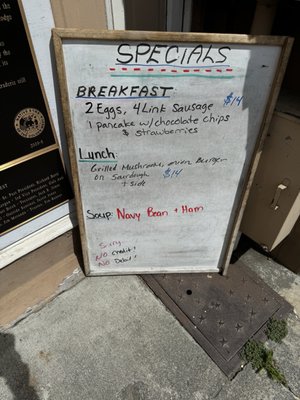 SPECIALS
BREAKFAST
2 Eggs, 4 Link Sausage $14
1 pancake w/ chocolate chips
& strawberries
Lunch:
Grilled Mushrooms, onion Burger
on Sourdough $14
+ side
Soup: Navy Bean + Ham
Sorry
NO Credit!
NO Debit!